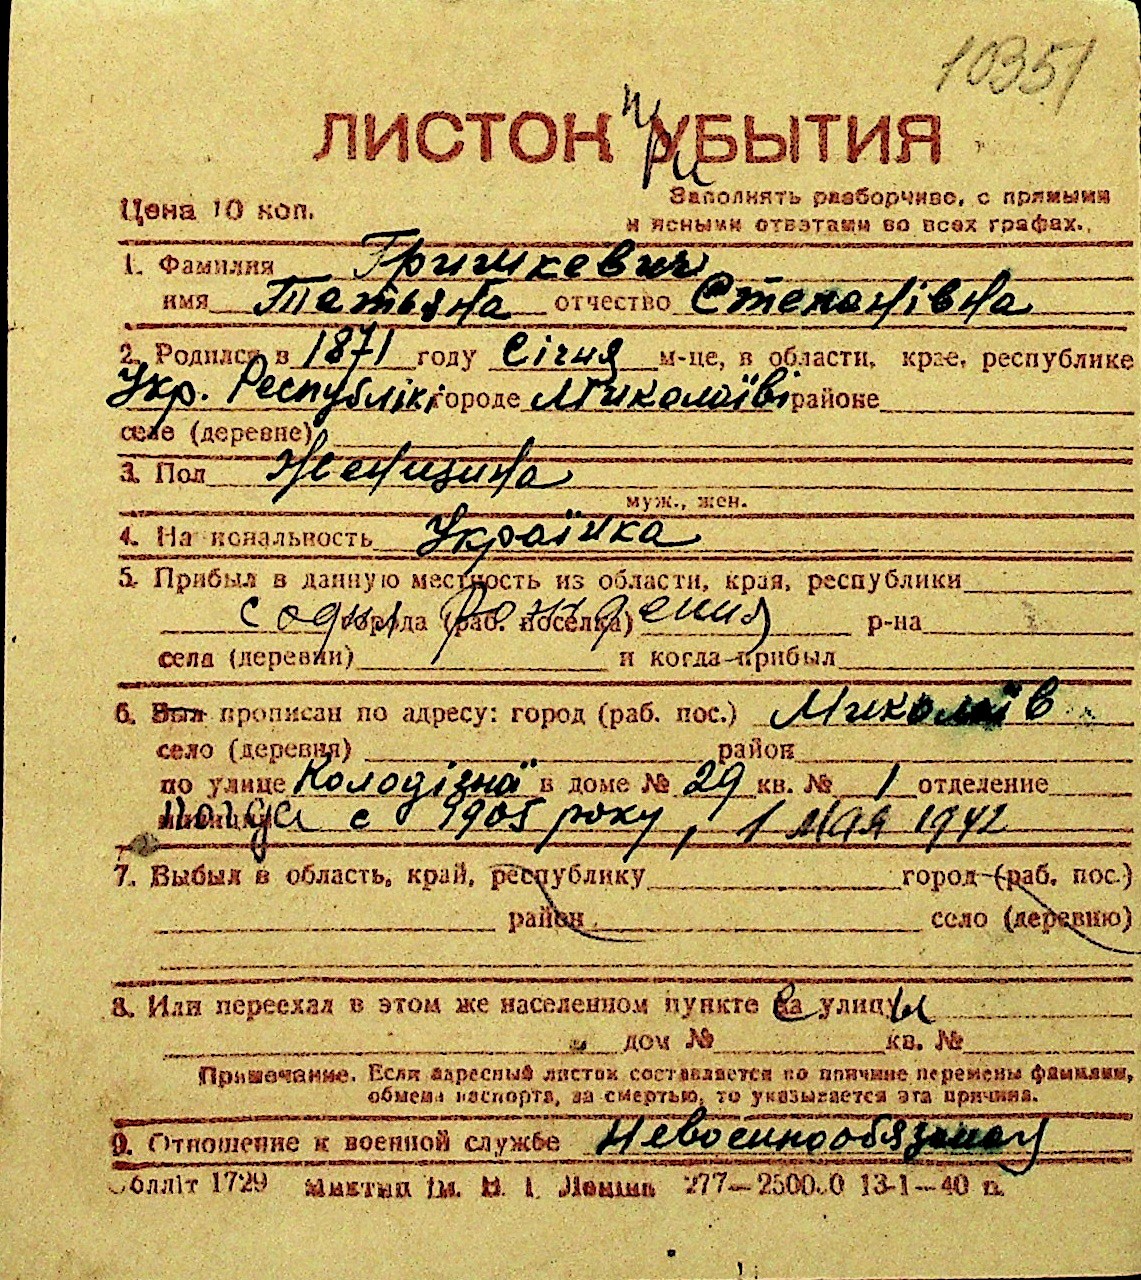 10351
ЛИСТОК при УБЫТИЯ
Цена 10 коп.
Заполнять разборчиво, с прямыми
и ясными ответами во всех графах.
1. Фамилия Гришкевич
имя Татьяна отчество Степанівна
2. Родился в 1871 году Січня м-це, в области, крае, республике
Укр. Республікі городе Миколаїві районе
селе (деревне)
3. Пол Женщина
муж., жен.
4. Национальность Українка
5. Прибыл в данную местность из области, края, республики
с одны рождения города (раб. поселка) р-на
села (деревни) и когда прибыл
6. Был прописан по адресу: город (раб. пос.) Миколаїв
село (деревня) район
по улице Колодізної в доме № 29 кв. № 1 отделение
милиции с 1905 року, 1 мая 1942
7. Выбыл в область, край, республику город (раб. пос.)
район село (деревню)
8. Или переехал в этом же населенном пункте на улицу
дом № кв. №
Примечание. Если адресный листок составляется по причине перемены фамилии,
обмена паспорта, за смертью, то указывается эта причина.
9. Отношение к военной службе Невоеннообязаной
Облліт 1729 Миктип ім. В. І. Леніна 277—25000 13-1—40 п.